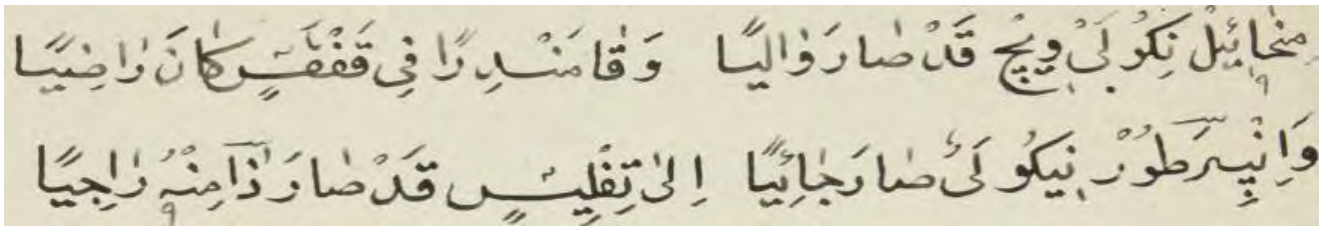 مِخٰائِيْلْ نِكُوْلَىْ وِيْچْ قَدْ صٰارَ وٰالِيًا وَقٰامَنْدِرًا فِى قَفْقَسٍ كٰانَ رٰاضِيًا
وَاِنْپِرَطُوْرْ نِيكُوْلَىْ صٰارَ جٰائِيًا اِلىٰ تِفْلِيسٍ قَدْ صٰارَ ذٰا مِنْهُ رٰاجِيًا